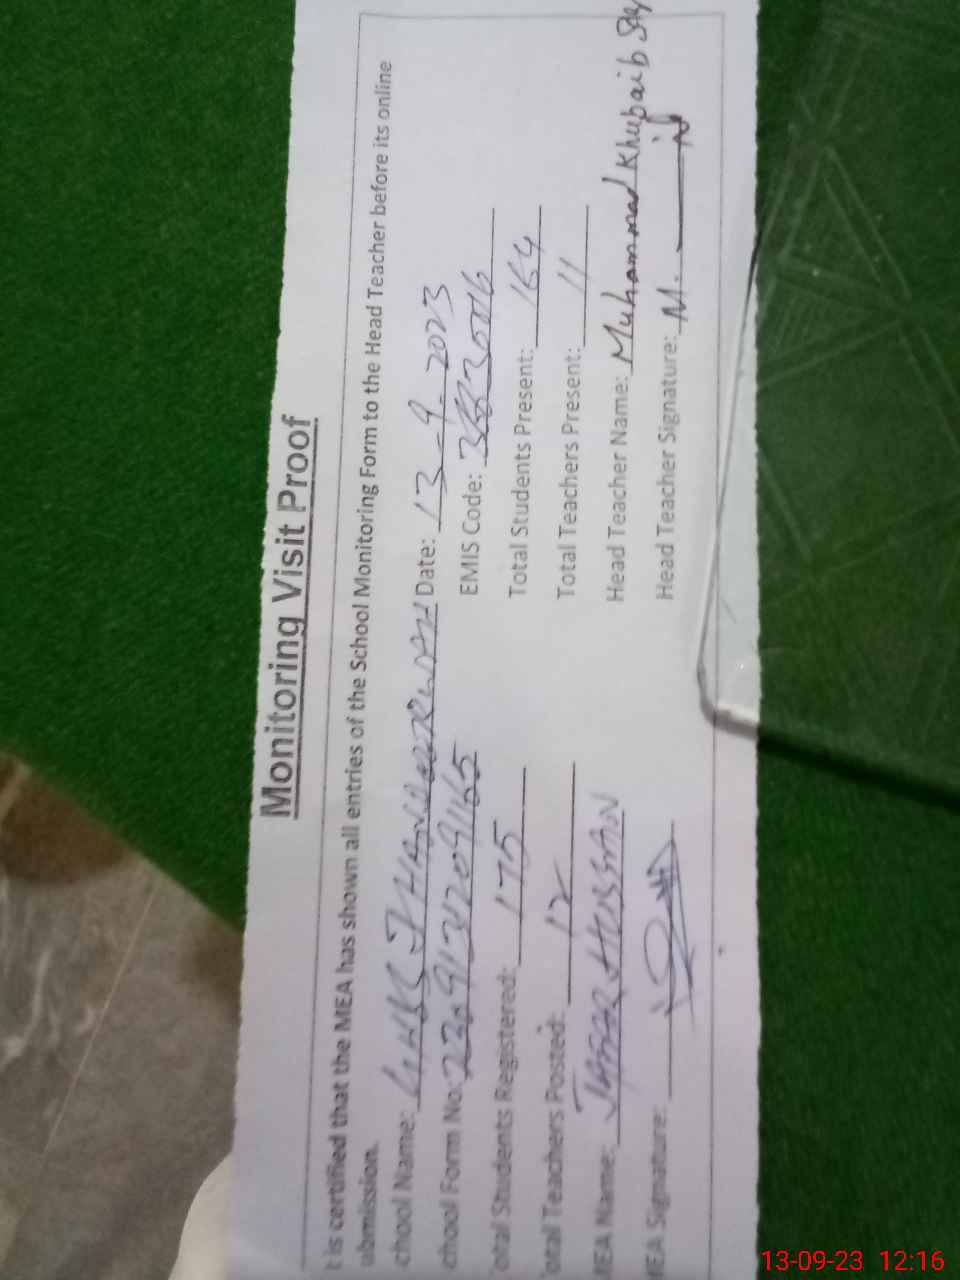 Monitoring Visit Proof
t is certified that the MEA has shown all entries of the School Monitoring Form to the Head Teacher before its online
ubmission.
chool Name: Date: 13-9-2023
chool Form No: EMIS Code:
otal Students Registered: 175 Total Students Present: 164
otal Teachers Posted: 12 Total Teachers Present: 11
MEA Name: JAFAR HUSSAN Head Teacher Name: Muhammad Khubaib
MEA Signature: Head Teacher Signature:
13-09-23 12:16